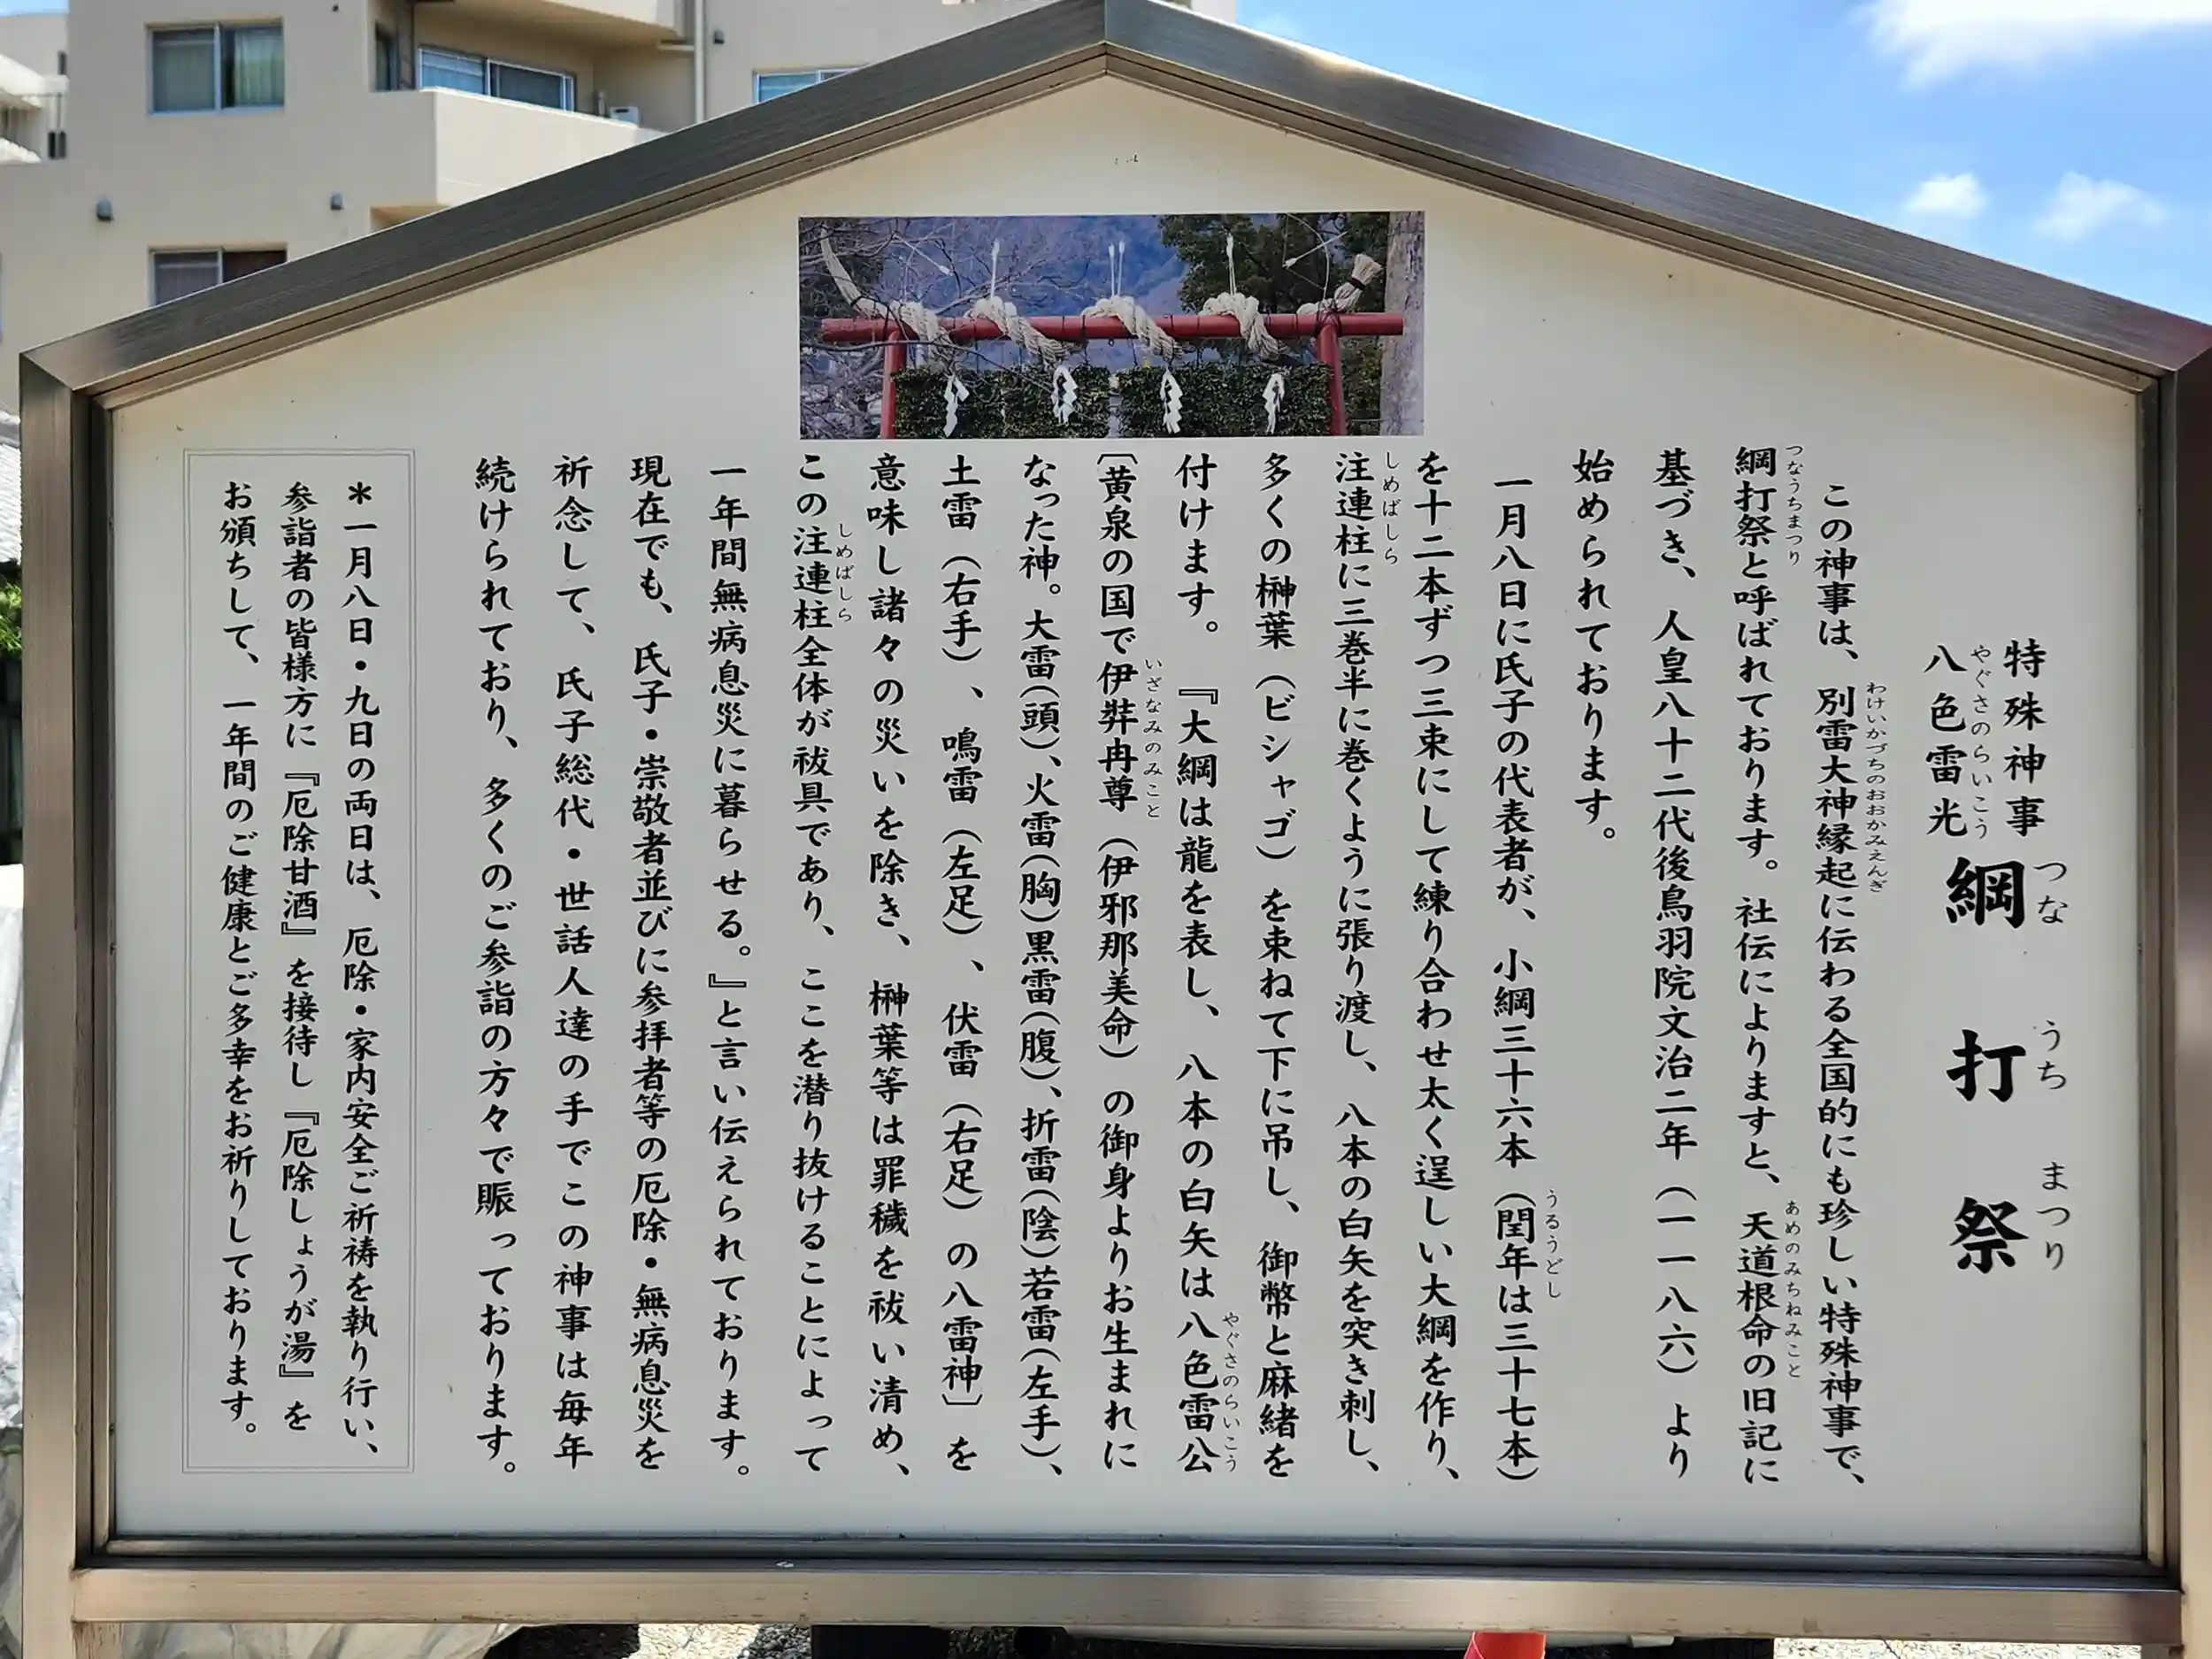 特殊神事
八色雷光
やぐさのらいこう
綱打祭
つな うち まつり
この神事は、別雷大神縁起に伝わる全国的にも珍しい特殊神事で、
わけいかづちのおおかみえんぎ
綱打祭と呼ばれております。社伝によりますと、天道根命の旧記に
つなうちまつり
あめのみちねみこと
基づき、人皇八十二代後鳥羽院文治二年（一一八六）より
始められております。
一月八日に氏子の代表者が、小綱三十六本（閏年は三十七本）
うるうどし
を十二本ずつ三束にして練り合わせ太く逞しい大綱を作り、
注連柱に三巻半に巻くように張り渡し、八本の白矢を突き刺し、
しめばしら
多くの榊葉（ビシャゴ）を束ねて下に吊し、御幣と麻緒を
付けます。『大綱は龍を表し、八本の白矢は八色雷公
やぐさのらいこう
〔黄泉の国で伊弉冉尊（伊邪那美命）の御身よりお生まれに
いざなみのみこと
なった神。大雷(頭)、火雷(胸)黒雷(腹)、折雷(陰)若雷(左手)、
土雷（右手）、鳴雷（左足）、伏雷（右足）の八雷神〕を
意味し諸々の災いを除き、榊葉等は罪穢を祓い清め、
この注連柱全体が祓具であり、ここを潜り抜けることによって
しめばしら
一年間無病息災に暮らせる。』と言い伝えられております。
現在でも、氏子・崇敬者並びに参拝者等の厄除・無病息災を
祈念して、氏子総代・世話人達の手でこの神事は毎年
続けられており、多くのご参詣の方々で賑っております。
＊一月八日・九日の両日は、厄除・家内安全ご祈祷を執り行い、
参詣者の皆様方に『厄除甘酒』を接待し『厄除しょうが湯』を
お頒ちして、一年間のご健康とご多幸をお祈りしております。